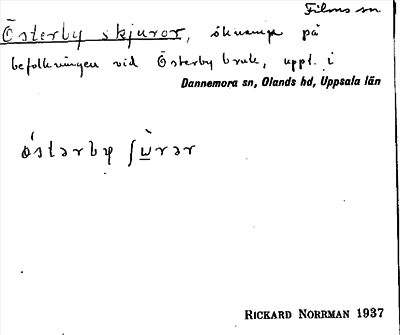 Films sn
Österby skjuror, öknamn på
befolkningen vid Österby bruk, uppt. i
Dannemora sn, Olands hd, Uppsala län
RICKARD NORRMAN 1937